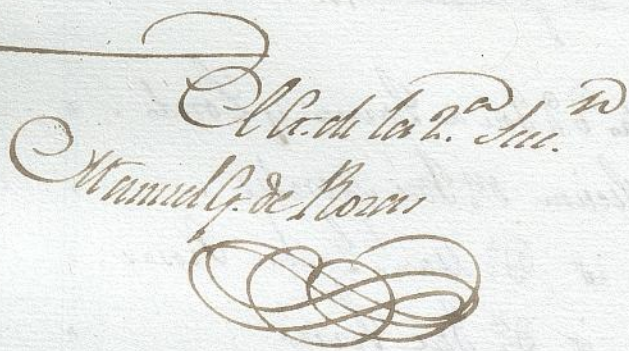 El G. de la 2.ª Sec.ⁿ
Manuel G. de Rozas